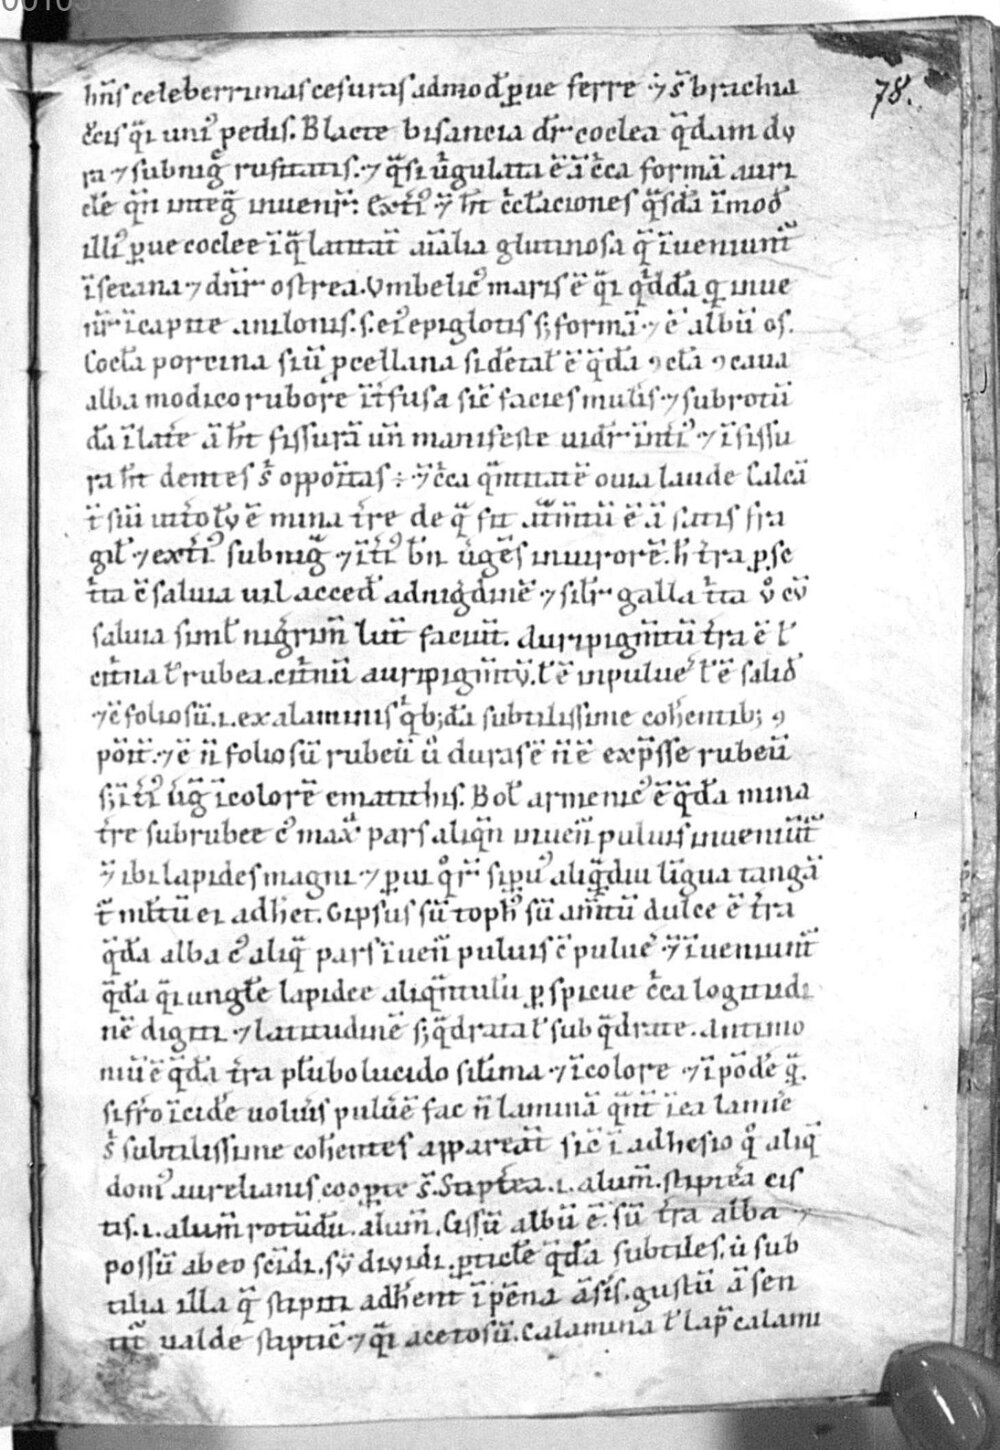 0010312
78.
hn̄s celeberrimas cesuras admod̄ ꝑue ferre ⁊ s̄ brachia
c̄cis q̄i uniꝰ pedis. Blacte bisancia dr̄ coclea q̄dam du
ra ⁊ subniḡ rufitatis. ⁊ q̄si u̇gulata ē ā c̄ca formā auri
cl̄e q̄n inteḡ inuenir̄. Ext̄iꝰ h̄t c̄cl̄aciones q̄sdā ī mod̄
illiꝰ ꝑue coclee ī q̄ latitat̄ aīalia glutinosa q̄ īueniunt̄
ī secana ⁊ dn̄r ostrea. Vmbelicꝰ maris ē q̄i q̇ddā q inue
nr̄ ī capite anilonis. s. eiꝰ epiglotis s; formā ⁊ ē albū os.
Cocl̄a porcina siū ꝑcellana si dētal̄ ē q̄dā ꝯcl̄a ꝯcaua
alba modico rubore īt̄fusa sic̄ facies mul̄is ⁊ subrotū
da ī lat̄e ā h̄t fissurā un̄ manifeste uidr̄ int̄iꝰ ⁊ ī fissu
ra h̄t dentes s̄ oppōitas ÷ ⁊ c̄ca q̄ntitatē oui alaude Calcā
t̄ siū uit̄olū ē mina t̄re de q̄ fit at̄m̄tū ē ā satis fra
gil̄ ⁊ ext̄iꝰ subniḡ ⁊ īt̄iꝰ b̄n u̇gēs in uirorē. h̄ t̄ra ꝑ se
t̄ta ē saluia uil acced̄ ad nigdinē ⁊ sil̄r galla t̄ta ů cū
saluia siml̄ nigrim̄ lut̄ faciūt. Auripigm̄tū t̄ra ē l̄
cit̄na l̄ rubea. cit̄nū auripigm̄tū. l̄ ē in puluē l̄ ē salid̄
⁊ ē foliosū .i. ex alaminis q̇b; dā subtilissime coh̄entib; ꝯ
pōit̄. ⁊ ē n̄ foliosū rubeū ů duras ē n̄ ē exp̄sse rubeū
s; īt̄iꝰ u̇ḡ ī colorē ematithis. Bol̄ armenicꝰ ē q̄dā mina
t̄re subrubee cꝰ max̄ pars aliq̄n inuen̄ puluis inueniūt̄
⁊ ibi lapides magni ⁊ ꝑui q̊r̄ si ꝑuꝰ aliq̄diu līgua tangā
t̄ ml̄tū ei adh̄et. Gipsus sū toph̄ sū am̄tū dulce ē t̄ra
q̄dā alba cꝰ aliq̄ pars īuen̄ puluis ē puluē ⁊ īueniunt̄
q̄dā q̄i ungl̄e lapidee aliq̄ntulū ꝑspicue c̄ca logitudi
nē digiti ⁊ latitudinē s; q̄drata l̄ sub q̄drate. Antimo
niū ē q̄dā t̄ra pl̄ubo lucido sil̄ima ⁊ ī colore ⁊ ī pōdē q̄.
si frō īcidē uolūis puluē fac n̄ laminā q̄nt̄ ī ea lamīe
s̄ subtilissime coh̄entes appareāt sic̄ ī adhesio q̊ aliq̄
domꝰ aurelianis cooꝑte s̄. Stipt̄ea .i. alum̄. stiptea cis
tis .i. alum̄ rotūdū. alum̄. Cissū albū ē. sū t̄ra alba ⁊
possū ab eo scīdi. sū diuidi. ꝑticl̄e q̄dā subtiles. ů sub
tilia illa q̄ stipiti adh̄ent ī pēna āsis. gustū ā sen
tit̄ ualde stiptic̄ ⁊ q̄i acetosū. Calamina l̄ lap̄ calami